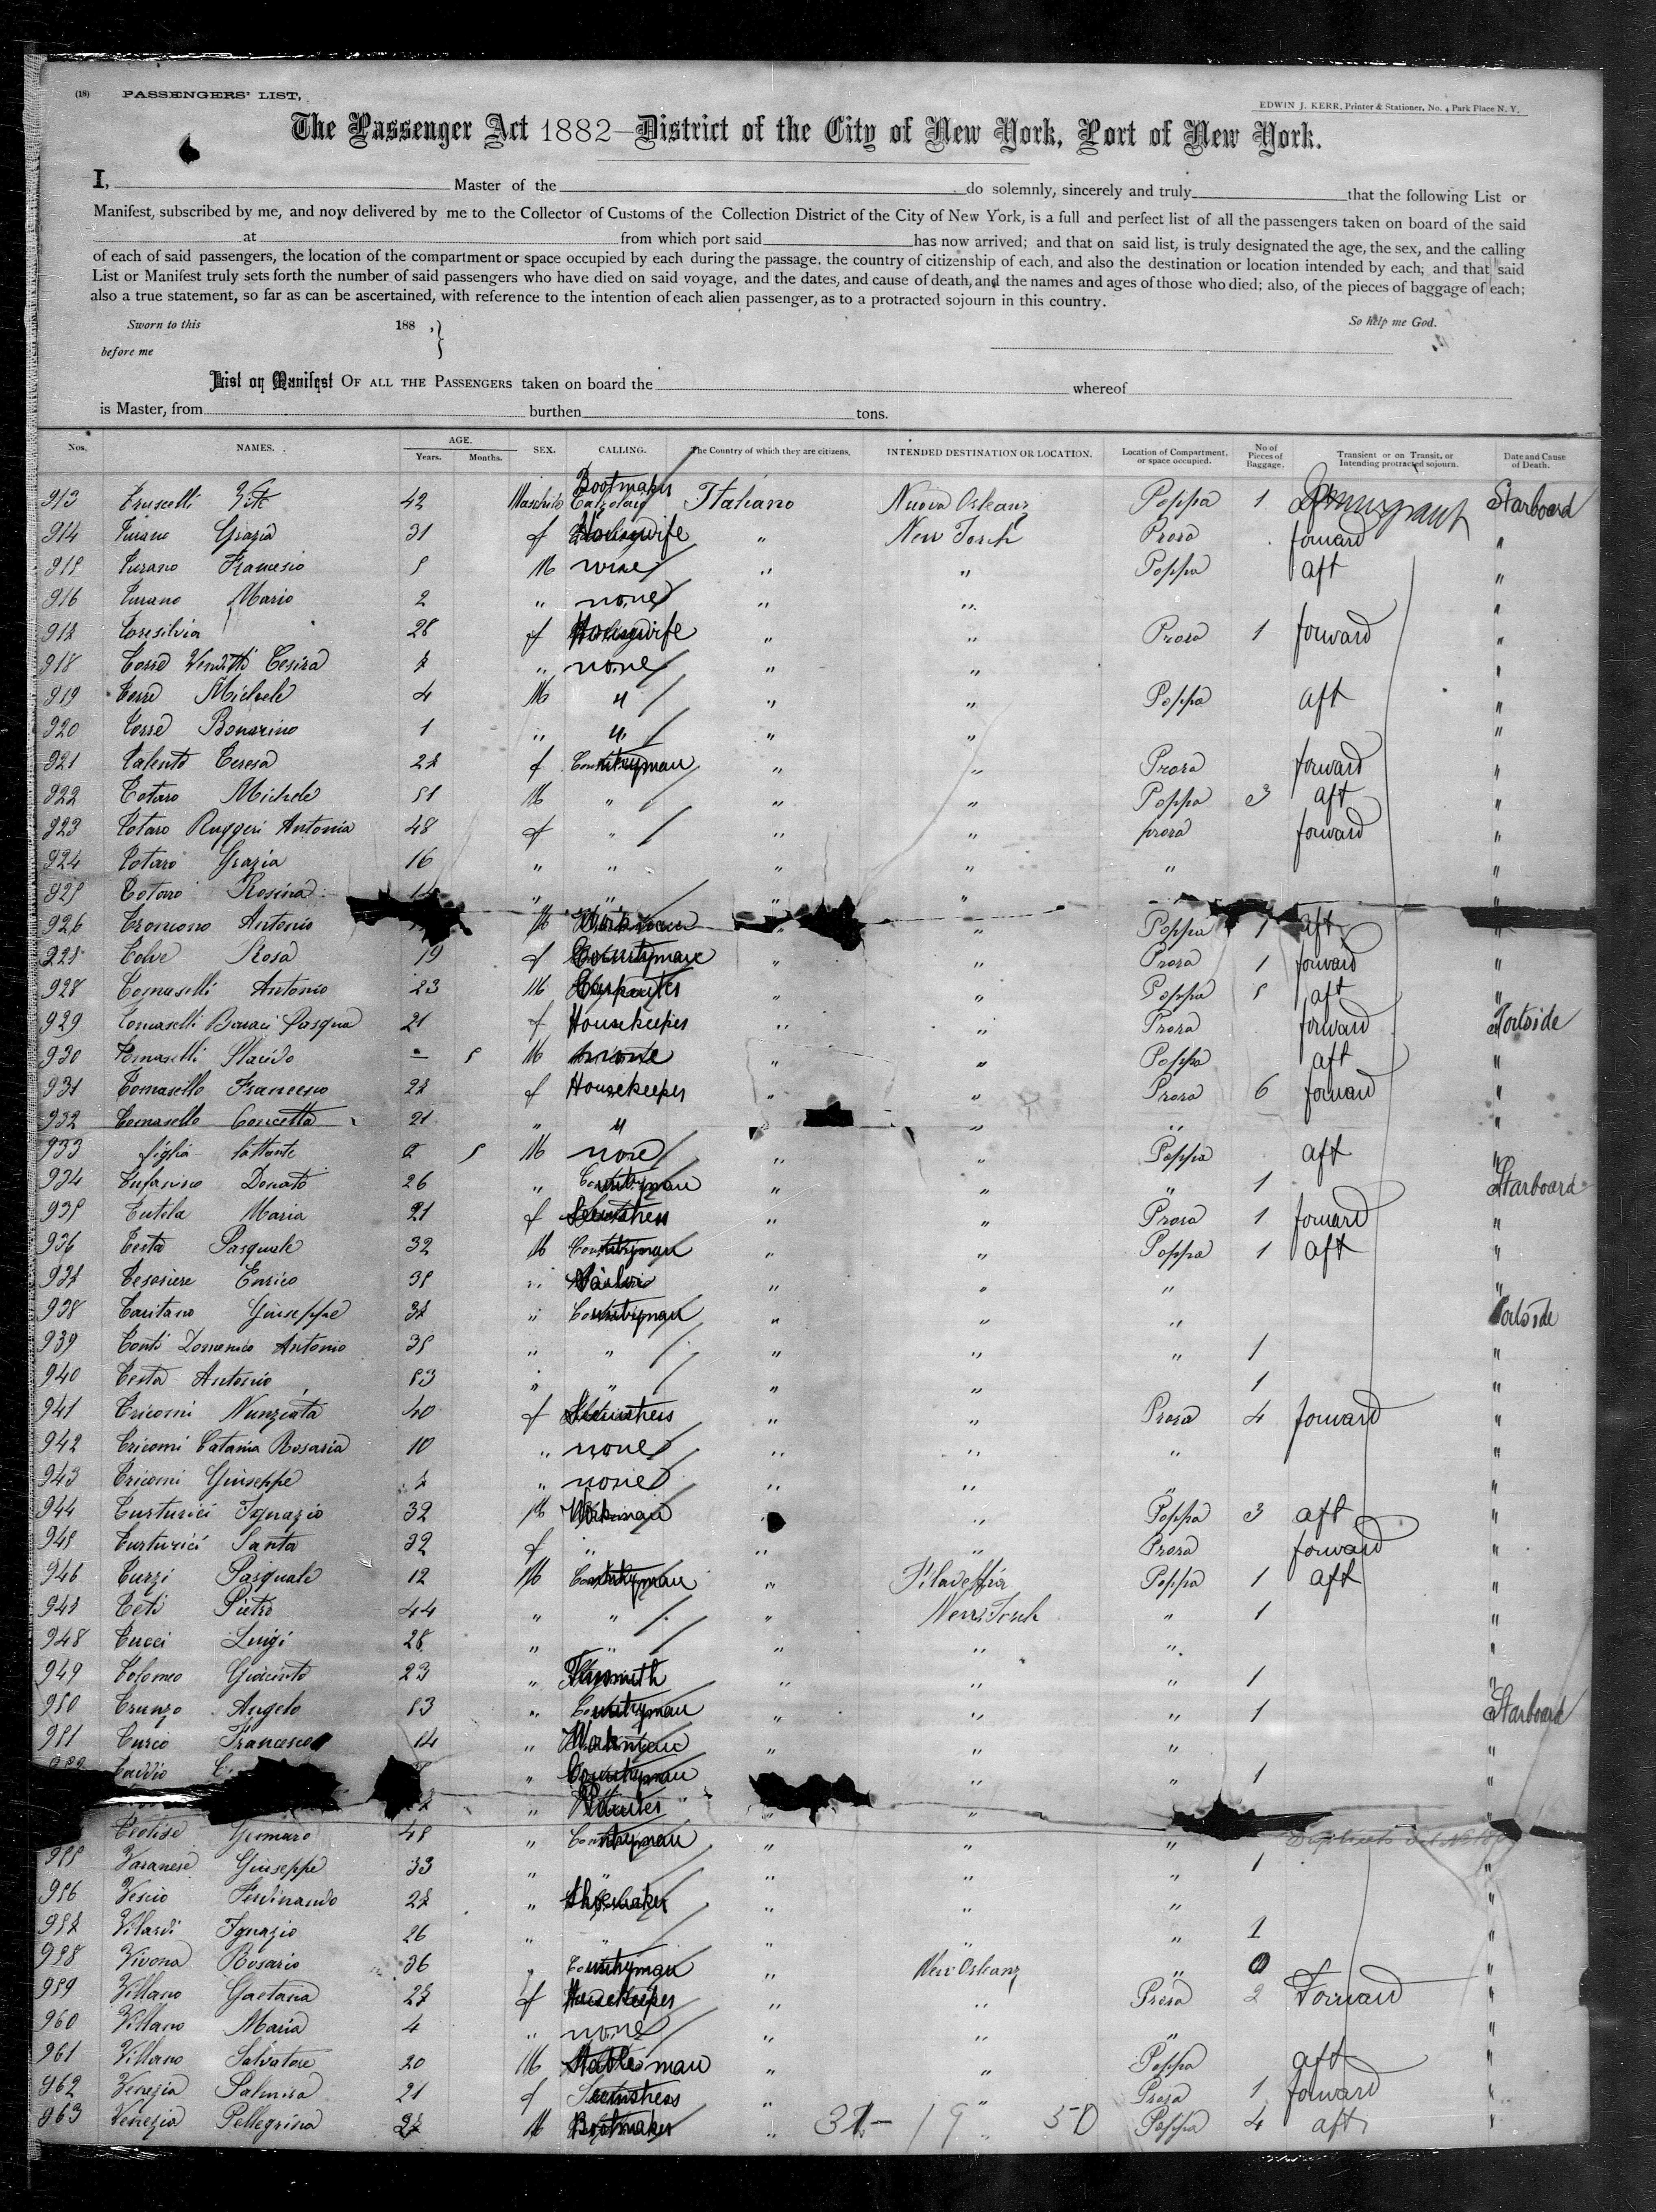 (18) PASSENGERS' LIST,
EDWIN J. KERR, Printer & Stationer, No. 4 Park Place N. Y.
The Passenger Act 1882—District of the City of New York, Port of New York.
I, Master of the do solemnly, sincerely and truly that the following List or
Manifest, subscribed by me, and now delivered by me to the Collector of Customs of the Collection District of the City of New York, is a full and perfect list of all the passengers taken on board of the said
at from which port said has now arrived; and that on said list, is truly designated the age, the sex, and the calling
of each of said passengers, the location of the compartment or space occupied by each during the passage. the country of citizenship of each, and also the destination or location intended by each; and that said
List or Manifest truly sets forth the number of said passengers who have died on said voyage, and the dates, and cause of death, and the names and ages of those who died; also, of the pieces of baggage of each;
also a true statement, so far as can be ascertained, with reference to the intention of each alien passenger, as to a protracted sojourn in this country.
Sworn to this 188 , } So help me God.
before me
List or Manifest OF ALL THE PASSENGERS taken on board the whereof
is Master, from burthen tons.
Nos. NAMES. AGE. Years. Months. SEX. CALLING. The Country of which they are citizens. INTENDED DESTINATION OR LOCATION. Location of Compartment, or space occupied. No of Pieces of Baggage. Transient or on Transit, or Intending protracted sojourn. Date and Cause of Death.
913 Truscelli Vito 42 Maschile Bootmaker Calzolaio Italiano Nuova Orleans Poppa 1 Immigrant Starboard
914 Grazia 31 f Housewife " New Jorch Prora forward "
915 Turano Francesco 5 M none " " Poppa aft "
916 Turano Mario 2 " none " " "
917 Toresilvia 28 f Housewife " " Prora 1 forward "
918 Torre Venditti Cesira 7 " none " " "
919 Torre Michele 4 M " " " Poppa aft "
920 Torre Bonarino 1 " " " " "
921 Talento Teresa 27 f Countryman " " Prora forward "
922 Totaro Michele 51 M " " " Poppa 3 aft "
923 Totaro Ruggeri Antonia 48 f " " " prora forward "
924 Totaro Grazia 16 " " " " " "
925 Totaro Rosina " " " "
926 Antonio M Workman " " Poppa 1 aft "
927 Rosa 19 f Countryman " " Prora 1 forward "
928 Tomaselli Antonio 23 M Carpenter " " Poppa 5 aft "
929 Tomaselli Pasqua 21 f Housekeeper " " Prora forward Portside
930 Tomaselli Placido — 5 M none " Poppa aft "
931 Tomasello Francesco 27 f Housekeeper " " Prora 6 forward "
932 Tomasello Concetta 21 " " " " "
933 figlia lattante 0 5 M none " " Poppa aft "
934 Tufarino Donato 26 " Countryman " " " 1 Starboard
935 Tutela Maria 21 f Seamstress " " Prora 1 forward "
936 Testa Pasquale 32 M Countryman " " Poppa 1 aft "
937 Tesoriere Enrico 35 " " " " "
938 Taritano Giuseppe 37 " Countryman " " " Portside
939 Tonti Domenico Antonio 35 " " " " " 1 "
940 Testa Antonio 53 " " " " 1 "
941 Tricomi Nunziata 40 f Seamstress " " Prora 4 forward "
942 Tricomi Catania Rosaria 10 " none " " " "
943 Tricomi Giuseppe 7 " none " " " "
944 Turturici Ignazio 32 M Workman " Poppa 3 aft "
945 Turturici Santa 32 f " " " Prora forward "
946 Turzi Pasquale 12 M Countryman " Filadelfia Poppa 1 aft "
947 Teti Pietro 44 " " " New Jorch " 1 "
948 Tucci Luigi 28 " " " " " "
949 Tolomeo Giacinto 23 " Tinsmith " " " 1 "
950 Trunzo Angelo 53 " Countryman " " " 1 Starboard
951 Turco Francesco 14 " Workman " " " "
" Countryman " " 1 "
" " "
Gennaro 45 " Countryman " " " Duplicate
955 Varanese Giuseppe 33 " " " " " 1 "
956 Vescio Ferdinando 27 " Shoemaker " " " "
957 Vilardi Ignazio 26 " " " " " 1 "
958 Vivona Rosario 36 " Countryman " New Orleans " 0 "
959 Villano Gaetana 27 f Housekeeper " " Prora 2 Forward "
960 Villano Maria 4 " none " " " "
961 Villano Salvatore 20 M Stableman " " Poppa aft "
962 Venezia Palmira 21 f Seamstress " " Prora 1 forward "
963 Venezia Pellegrino 27 M Bootmaker " 31 - 19 " 50 Poppa 4 aft "